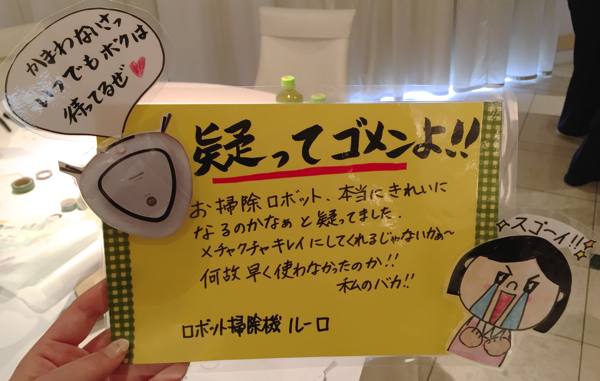 かまわないさっ
いつでもボクは
待ってるぜ♥
疑ってゴメンよ!!
お掃除ロボット、本当にきれいに
なるのかなぁと疑ってました。
メチャクチャキレイにしてくれるじゃないかぁ~
何故早く使わなかったのか!!
私のバカ!!
ロボット掃除機 ルーロ
スゴーイ!!